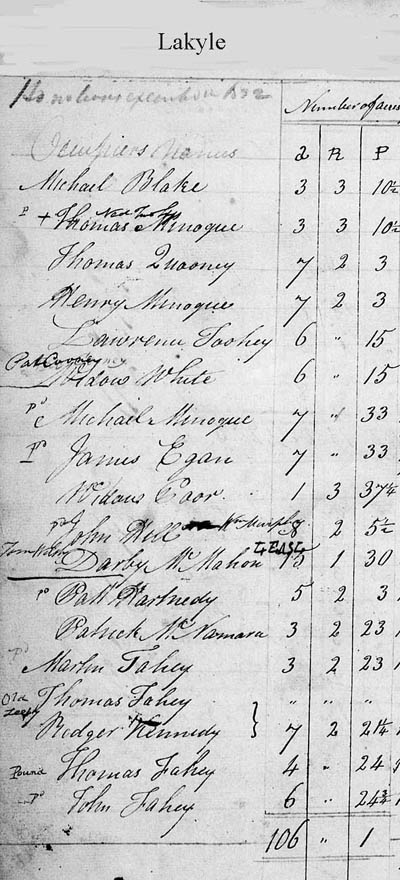 Lakyle
1832 Number of acres
Occupiers Names a R P
Michael Blake 3 3 10½
P + Thomas Minogue 3 3 10½
Thomas Quaney 7 2 3
Henry Minogue 7 2 3
Lawrence Toohey 6 " 15
Pat Cooney
Widow White 6 " 15
Pd Michael Minogue 7 " 33
Pd James Egan 7 " 33
Widow Coor 1 3 37¼
Pd John Hill Wm Murphy 8 2 5½
LEASE
Darby McMahon 13 1 30
P Patt Hartnedy 5 2 3
Patrick McNamara 3 2 23
Pd Martin Fahey 3 2 23
Old Thomas Fahey " " "
Rodger Kennedy } 7 2 21¼
Pound Thomas Fahey 4 " 24
Pd John Fahey 6 " 24¾
106 " 1